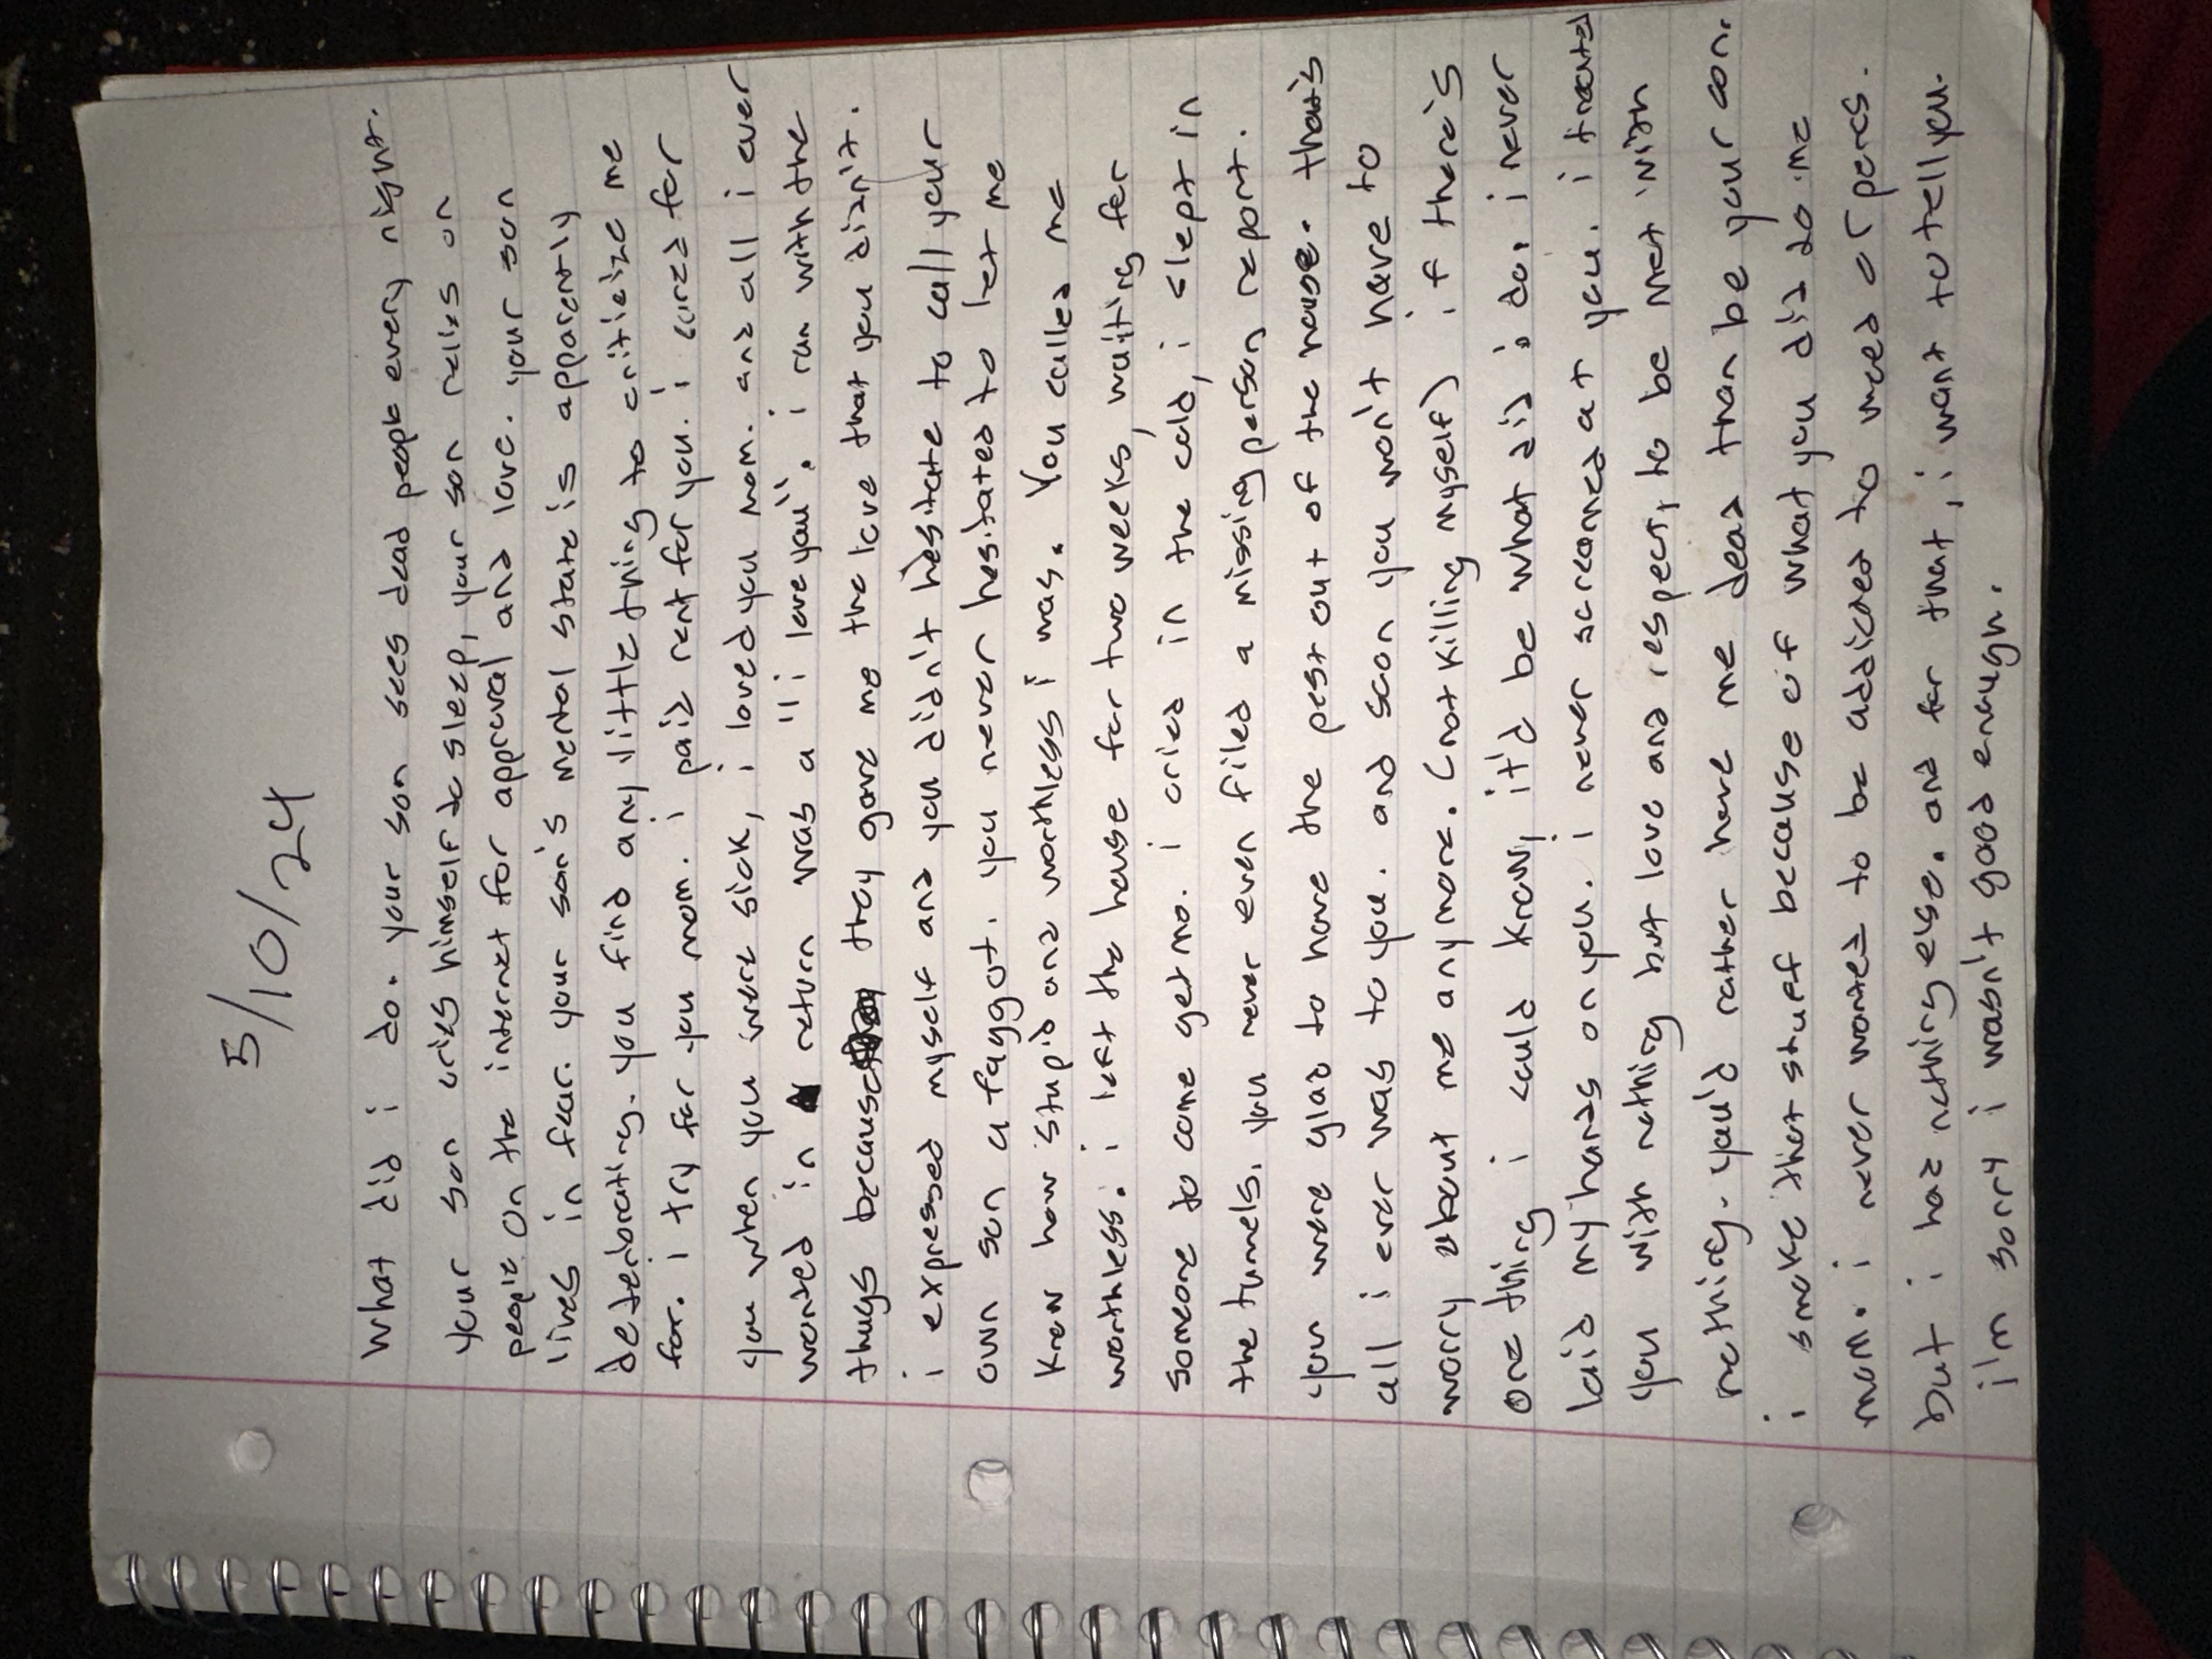 5/10/24
What did i do. your son sees dead people every night.
your son cries himself to sleep, your son relies on
people on the internet for approval and love. your son
lives in fear. your son's mental state is apparently
deteriorating. you find any little thing to criticize me
for. i try for you mom. i paid rent for you. i cared for
you when you were sick, i loved you mom. and all i ever
wanted in return was a "i love you". i ran with the
thugs because they gave me the love that you didn't.
i expressed myself and you didn't hesitate to call your
own son a faggot. you never hesitated to let me
know how stupid and worthless i was. You called me
worthless. i left the house for two weeks, waiting for
someone to come get me. i cried in the cold, i slept in
the tunnels. you never even filed a missing person report.
you were glad to have the pest out of the house. that's
all i ever was to you. and soon you won't have to
worry about me anymore. (not killing myself) if there's
one thing i could know, it'd be what did i do. i never
laid my hands on you. i never screamed at you. i treated
you with nothing but love and respect, to be met with
nothing. you'd rather have me dead than be your son.
i smoke that stuff because of what you did to me
mom. i never wanted to be addicted to weed or percs.
but i had nothing else. and for that, i want to tell you.
i'm sorry i wasn't good enough.